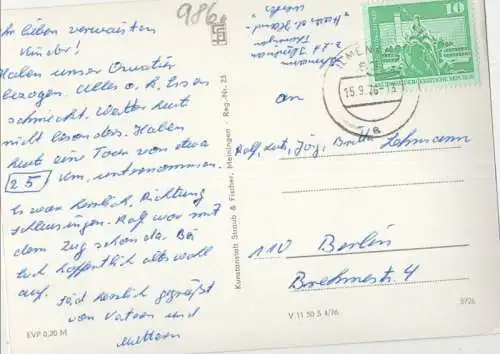 986
Ihr lieben verwaisten
Kinder!
Haben unser Quartier
bezogen. Alles o.k. Essen
schmeckt. Wetter heut
nicht besonders. Haben
heut eine Tour von etwa
25 km, unternommen.
Es war herrlich, Richtung
Schleusingen. Ralf war mit
dem Zug schon da. Bei
Euch hoffentlich alles wohl
auf. Seid herzlich gegrüßt
von Vatern und
Muttern
EVP 0,20 M
Kunstanstalt Straub & Fischer, Meiningen · Reg.-Nr. 23
Lehmann
Ilmenau
Thüringen
10
DEUTSCHE DEMOKRATISCHE REPUBLIK
ILMENAU
15.9.76-13
a
an
Ralf, Lutz, Jörg, Britta Lehmann
110 Berlin
Brehmestr. 4
V 11 50 S 4/76
5726